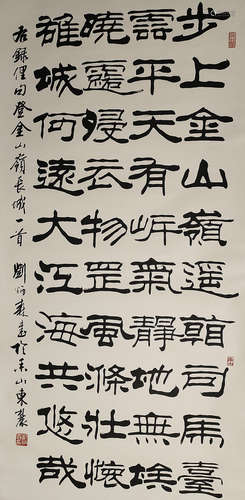 步上金山嶺遥朝司馬臺
雲平天有岸氣靜地無埃
曉露浸衣物罡風滌壯懷
雄城何遠大江海共悠哉
右録俚句登金山嶺長城一首 劉炳森書於香山東麓